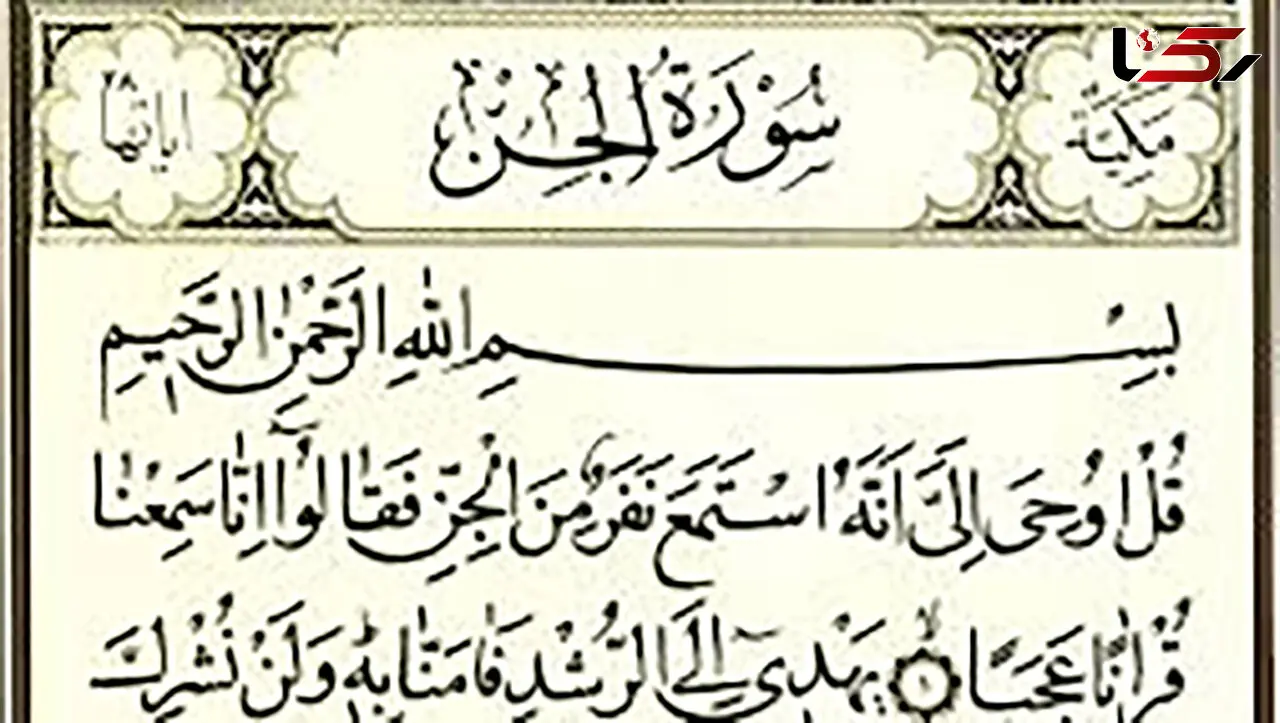 رکنا
مَكِّيَّة
سُوْرَةُ الْجِنّ
اٰيَاتُهَا ٢٨
بِسْمِ اللّٰهِ الرَّحْمٰنِ الرَّحِيمِ
قُلْ اُوحِىَ اِلَىَّ اَنَّهُ اسْتَمَعَ نَفَرٌ مِنَ الْجِنِّ فَقَالُوٓا اِنَّا سَمِعْنَا
قُرْاٰنًا عَجَبًا ١ يَهْدِىٓ اِلَى الرُّشْدِ فَاٰمَنَّا بِهٖ وَلَنْ نُشْرِكَ